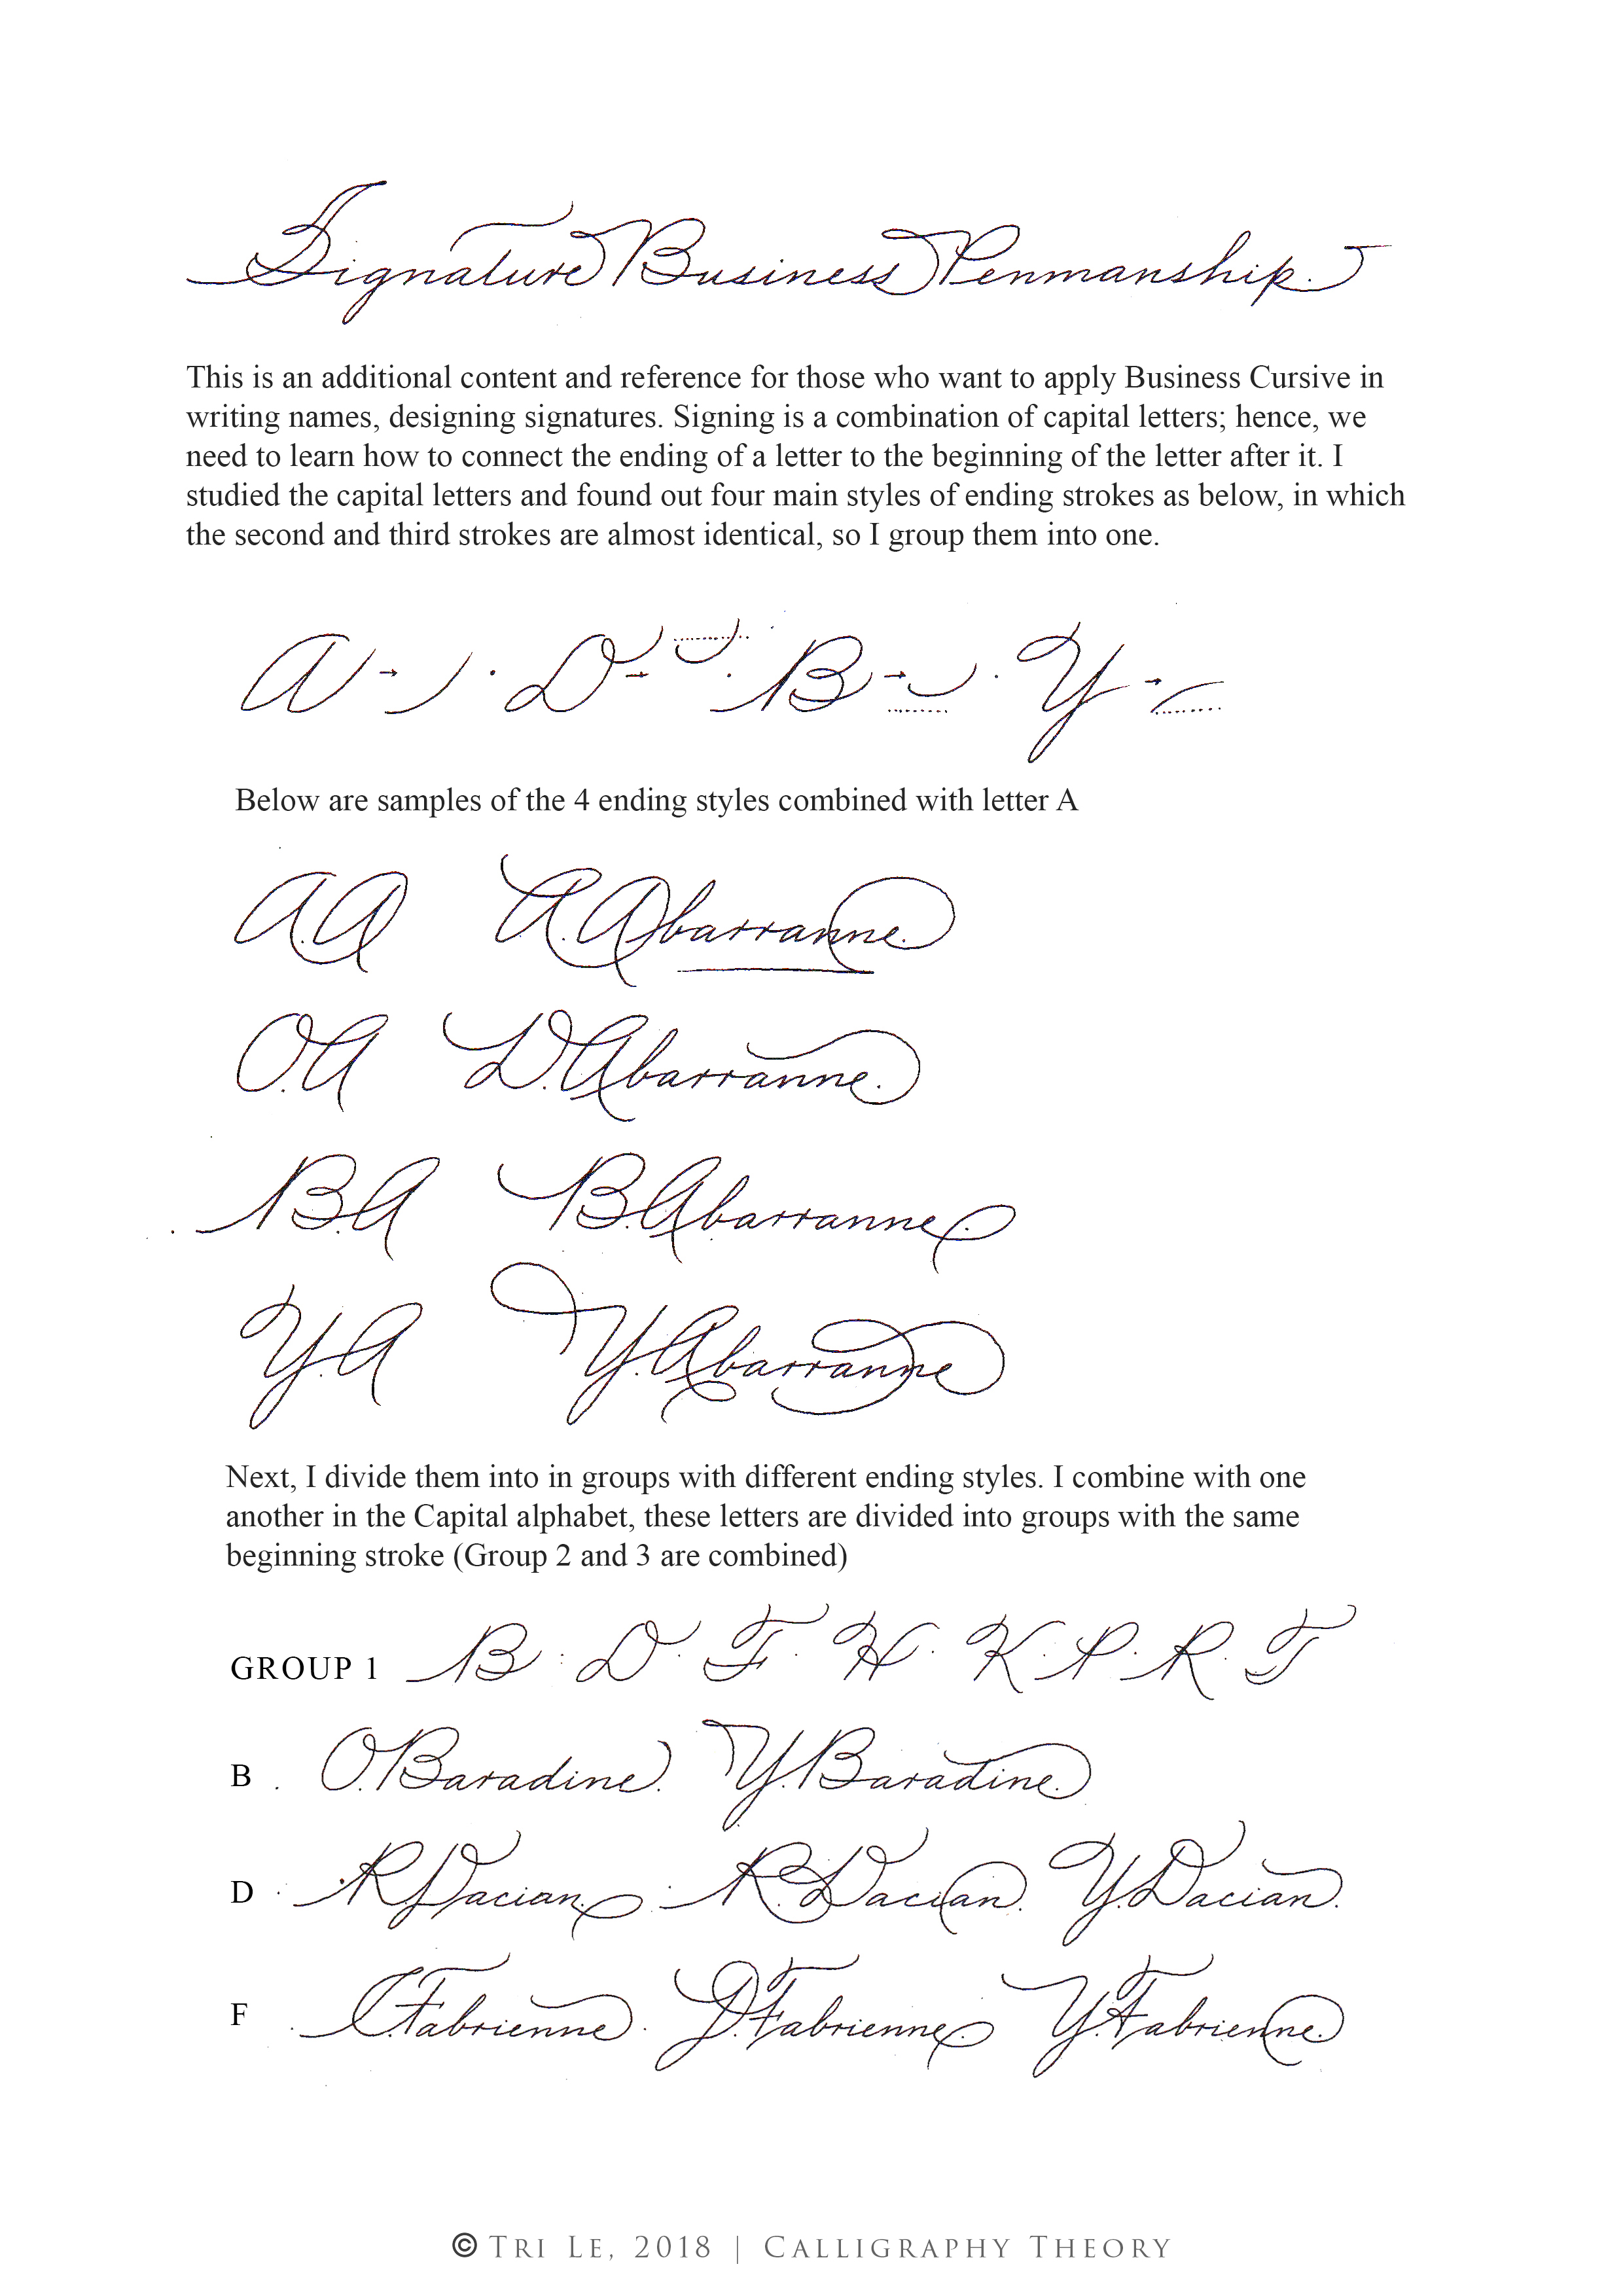 Signature Business Penmanship.
This is an additional content and reference for those who want to apply Business Cursive in
writing names, designing signatures. Signing is a combination of capital letters; hence, we
need to learn how to connect the ending of a letter to the beginning of the letter after it. I
studied the capital letters and found out four main styles of ending strokes as below, in which
the second and third strokes are almost identical, so I group them into one.
A · D · B · Y
Below are samples of the 4 ending styles combined with letter A
A.A A.Abarranne.
O.A D.Abarranne.
B.A B.Abarranne.
Y.A Y.Abarranne
Next, I divide them into in groups with different ending styles. I combine with one
another in the Capital alphabet, these letters are divided into groups with the same
beginning stroke (Group 2 and 3 are combined)
GROUP 1 B · D · F · H · K · P · R · T
B O.Baradine. Y.Baradine.
D R.Dacian. R.Dacian. Y.Dacian.
F C.Fabrienne. D.Fabrienne. Y.Fabrienne.
© TRI LE, 2018 | CALLIGRAPHY THEORY